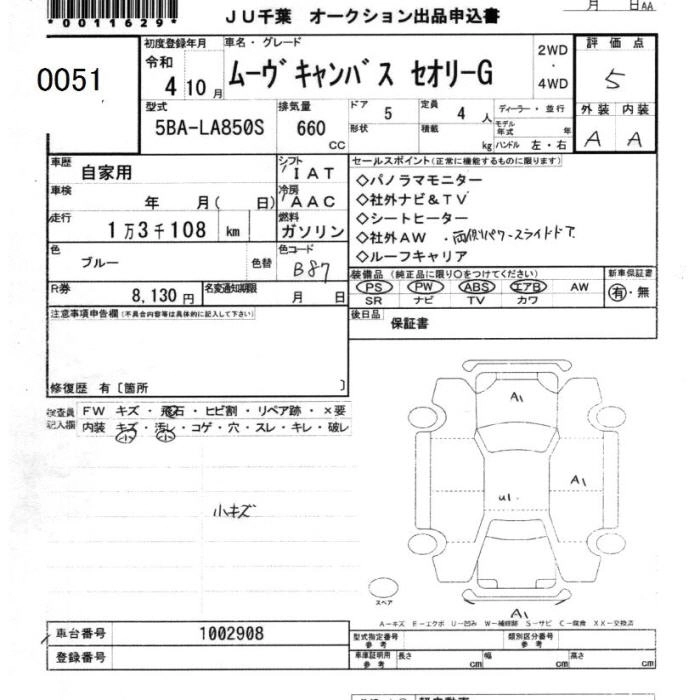 *0011629*
JU千葉 オークション出品申込書
月 日AA
0051
初度登録年月
令和
4 10 月
車名・グレード
ムーヴキャンバス セオリーG
2WD
・
4WD
評価点
5
型式
5BA-LA850S
排気量
660
CC
ドア
5
形状
定員
4 人
積載
kg
ディーラー・並行
モデル年式 年
ハンドル 左・右
外装 内装
A A
車歴
自家用
シフト
IAT
車検
年 月( 日)
冷房
AAC
走行
1万3千108 km
燃料
ガソリン
色
ブルー
色替
色コード
B87
R券
8,130円
名変通知期限
月 日
セールスポイント(正常に機能するものに限ります)
◇パノラマモニター
◇社外ナビ&TV
◇シートヒーター
◇社外AW ・両側パワースライドドア
◇ルーフキャリア
装備品 (純正品に限り○をつけてください)
PS PW ABS エアB AW
SR ナビ TV カワ
新車保証書
有・無
注意事項申告欄(不具合内容等は具体的に記入して下さい)
修復歴 有〔箇所 〕
後日品
保証書
検査員
記入欄
FW キズ・飛石・ヒビ割・リペア跡・×要
内装 キズ・汚レ・コゲ・穴・スレ・キレ・破レ
小 小
小キズ
A1
A1
U1
A1
スペア
A-キズ E-エクボ U-凹み W-補修跡 S-サビ C-腐食 XX-交換済
車台番号
1002908
登録番号
型式指定番号
参考
類別区分番号
参考
車庫証明用
参考
長さ cm 幅 cm 高さ cm